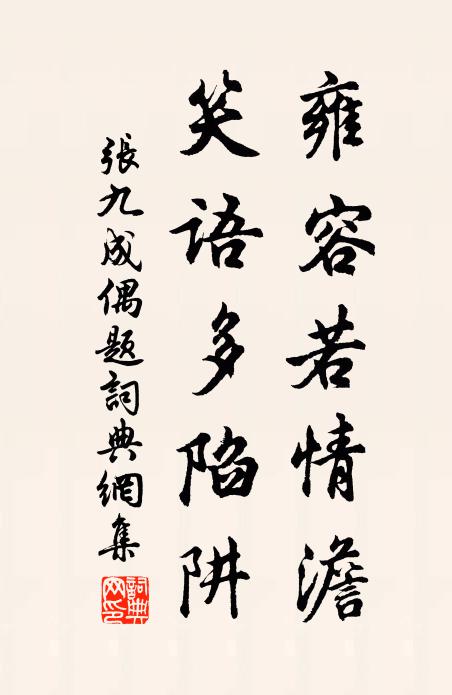 雍容若情澹
笑語多陷阱
張九成偶題詞典網集
詞典網印